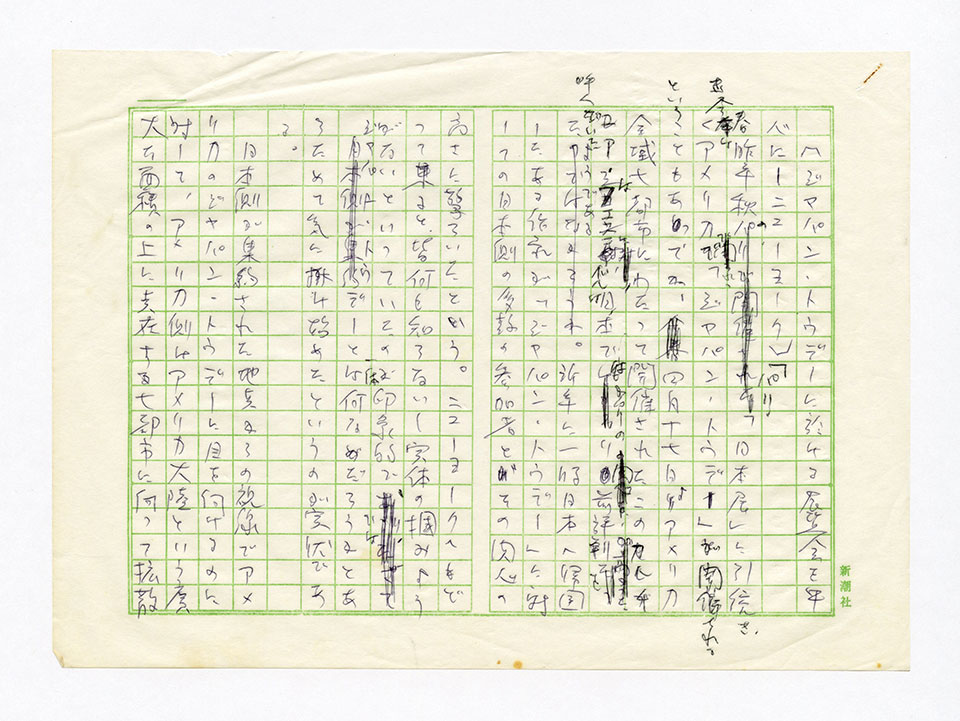 「ジャパン・トゥデー」に於ける展覧会を中
心に―ニューヨーク
昨年秋パリの「日本展」に引続き、
アメリカで「ジャパン・トゥデー」が開催される
ということもあってか、四月十七日よりアメリカ
全域七都市にわたって開催されたこの
日本で 前評判を
呼んでいた
近年に一時日本へ帰国
したある作家が「ジャパン・トゥデー」に対
しての日本側の多数の参加者とその関心の
高さに驚いたという。ニューヨークへもど
って来ると、皆何も知らないし実体の掴みよう
がないといっていたのが印象的で
ジャパン・トゥデーとは一体何なのだろうかとあ
らためて気に掛け始めたというのが実状であ
る。
日本側が集約された地点からの視像でアメ
リカのジャパン・トゥデーに目を向けるのに
対して、アメリカ側はアメリカ大陸という広
大な面積の上に点在する七都市に向って拡散
新潮社